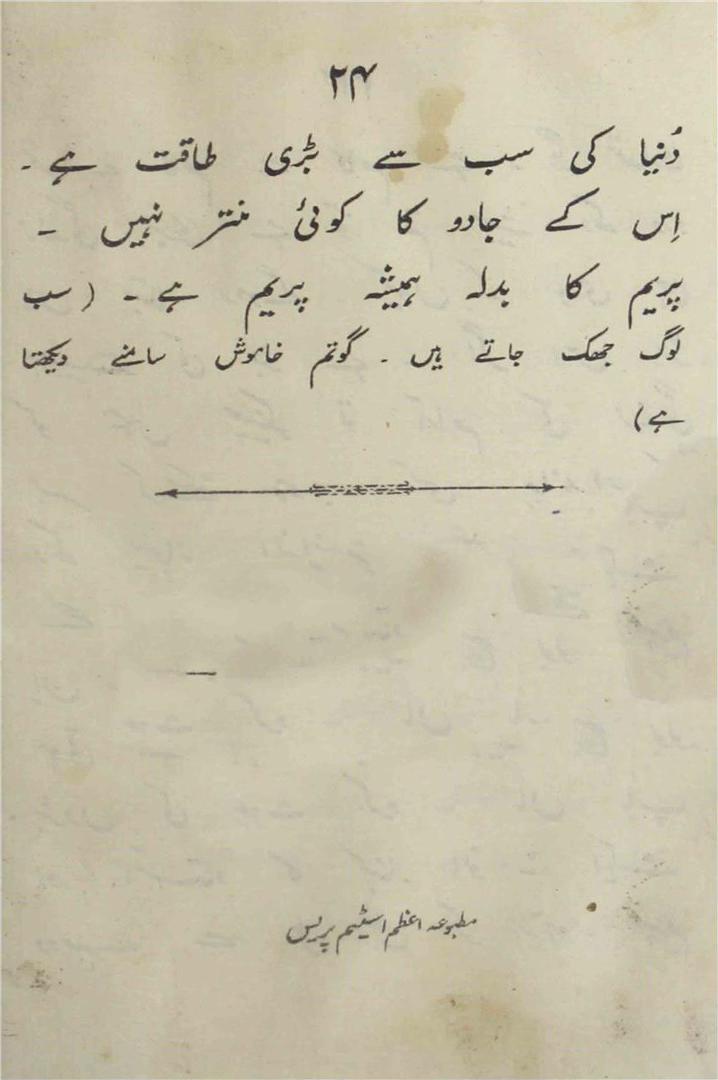 ۲۴
دُنیا کی سب سے بڑی طاقت ہے ۔
اِس کے جادو کا کوئی منتر نہیں ۔
پریم کا بدلہ ہمیشہ پریم ہے ۔ (سب
لوگ جھک جاتے ہیں ۔ گوتم خاموش سامنے دیکھتا
ہے)
مطبوعہ اعظم اسٹیم پریس